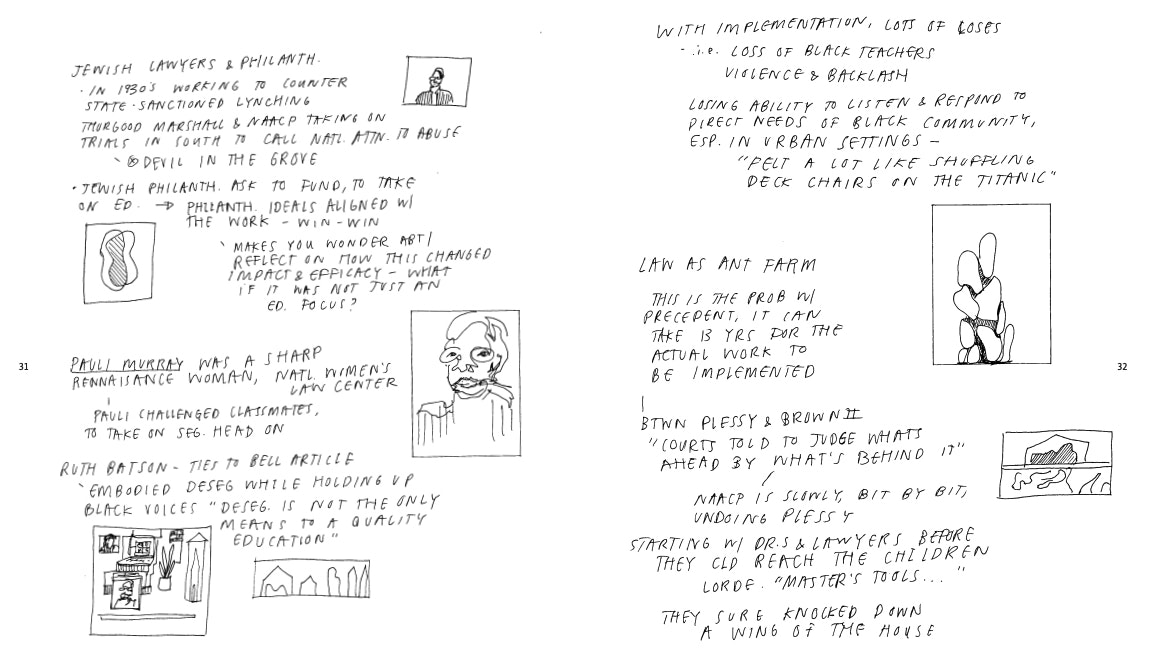 JEWISH LAWYERS & PHILANTH.
· IN 1930'S WORKING TO COUNTER
STATE-SANCTIONED LYNCHING
THURGOOD MARSHALL & NAACP TAKING ON
TRIALS IN SOUTH TO CALL NATL. ATTN. TO ABUSE
DEVIL IN THE GROVE
· JEWISH PHILANTH. ASK TO FUND, TO TAKE
ON ED. → PHILANTH. IDEALS ALIGNED W/
THE WORK - WIN-WIN
MAKES YOU WONDER ABT/
REFLECT ON HOW THIS CHANGED
IMPACT & EFFICACY - WHAT
IF IT WAS NOT JUST AN
ED. FOCUS?
31
PAULI MURRAY WAS A SHARP
RENNAISANCE WOMAN, NATL. WOMEN'S
LAW CENTER
PAULI CHALLENGED CLASSMATES,
TO TAKE ON SEG. HEAD ON
RUTH BATSON - TIES TO BELL ARTICLE
EMBODIED DESEG WHILE HOLDING UP
BLACK VOICES "DESEG. IS NOT THE ONLY
MEANS TO A QUALITY
EDUCATION"
WITH IMPLEMENTATION, LOTS OF LOSES
- i.e. LOSS OF BLACK TEACHERS
VIOLENCE & BACKLASH
LOSING ABILITY TO LISTEN & RESPOND TO
DIRECT NEEDS OF BLACK COMMUNITY,
ESP. IN URBAN SETTINGS -
"FELT A LOT LIKE SHUFFLING
DECK CHAIRS ON THE TITANIC"
LAW AS ANT FARM
THIS IS THE PROB W/
PRECEDENT, IT CAN
TAKE 13 YRS FOR THE
ACTUAL WORK TO
BE IMPLEMENTED
32
BTWN PLESSY & BROWN II
"COURTS TOLD TO JUDGE WHATS
AHEAD BY WHAT'S BEHIND IT"
NAACP IS SLOWLY, BIT BY BIT,
UNDOING PLESSY
STARTING W/ DR.S & LAWYERS BEFORE
THEY CLD REACH THE CHILDREN
LORDE. "MASTER'S TOOLS... "
THEY SURE KNOCKED DOWN
A WING OF THE HOUSE